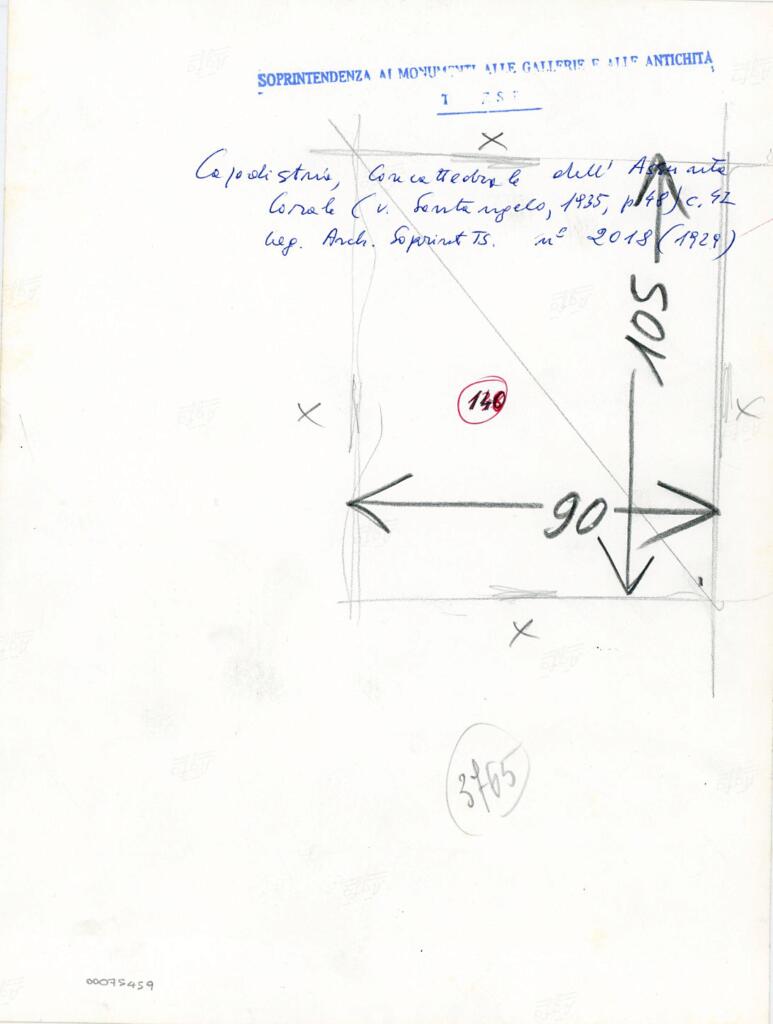 SOPRINTENDENZA AI MONUMENTI ALLE GALLERIE E ALLE ANTICHITÀ
Capodistria, Concattedrale dell'Assunta
Corale (v. Santangelo, 1935, p. 48) c. 42
Neg. Arch. Soprint TS. n° 2018 (1929)
105
140
90
3765
00075459